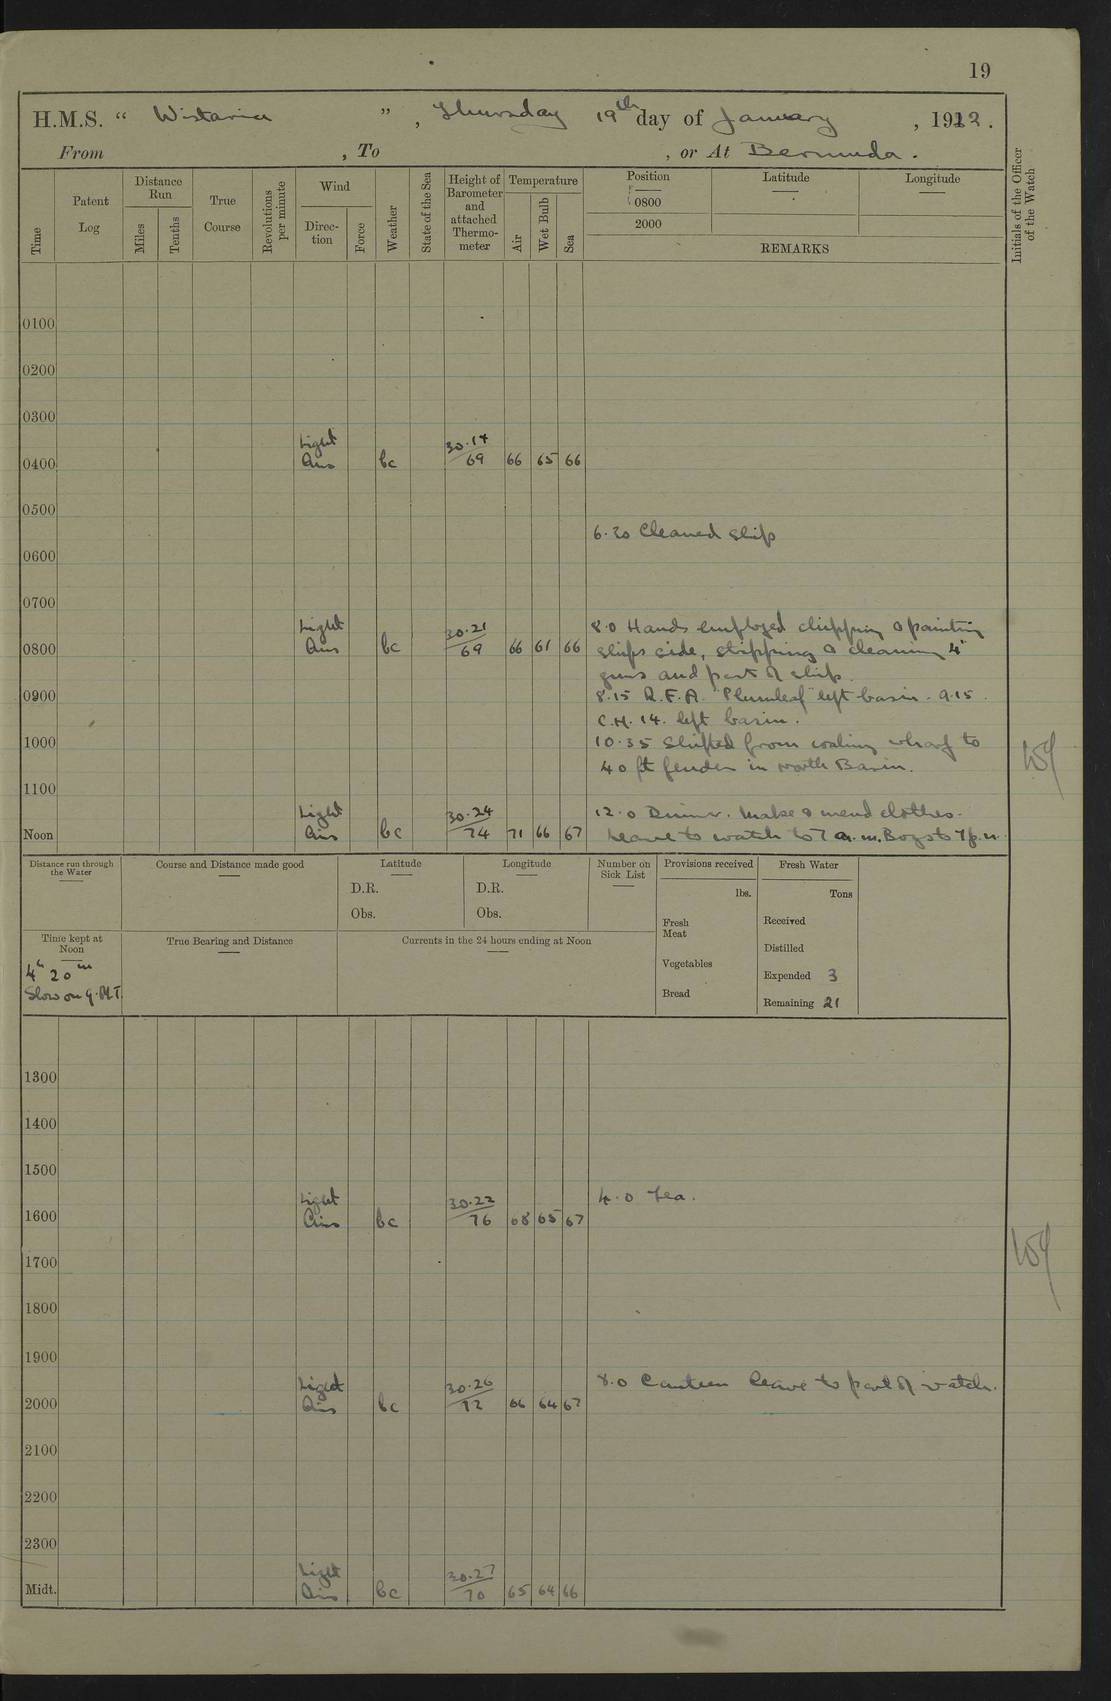 19
H.M.S. “ Wistaria ” , Thursday 19th day of January , 1922 .
From , To , or At Bermuda .
Time
Patent Log
Distance Run
Miles
Tenths
True Course
Revolutions per minute
Wind
Direction
Force
Weather
State of the Sea
Height of Barometer and attached Thermometer
Temperature
Air
Wet Bulb
Sea
Position
0800
2000
Latitude
Longitude
REMARKS
Initials of the Officer of the Watch
0100
0200
0300
0400 Light Airs bc 30.14 69 66 65 66
0500
6.20 Cleaned ship
0600
0700
0800 Light Airs bc 30.21 69 66 61 66
8.0 Hands employed chipping & painting
ships side, stripping & cleaning 4"
guns and part of ship.
0900
8.15 R.F.A. "Plumleaf" left basin. 9.15.
C.H. 14. left basin.
1000
10.35 Shifted from coaling wharf to
40 ft fender in north Basin.
1100
Noon Light Airs bc 30.24 74 71 66 67
12.0 Dinner. Make & mend clothes.
Leave to watch to 7 a.m. Boys to 7 p.m.
Distance run through the Water
Course and Distance made good
Latitude
D.R.
Obs.
Longitude
D.R.
Obs.
Number on Sick List
Provisions received
lbs.
Fresh Meat
Vegetables
Bread
Fresh Water
Tons
Received
Distilled
Expended 3
Remaining 21
Time kept at Noon
4h 20m
Slow on G.M.T.
True Bearing and Distance
Currents in the 24 hours ending at Noon
1300
1400
1500
4.0 Tea.
1600 Light Airs bc 30.22 76 68 65 67
1700
1800
1900
8.0 Canteen leave to part of watch.
2000 Light Airs bc 30.26 72 66 64 67
2100
2200
2300
Midt. Light Airs bc 30.27 70 65 64 66